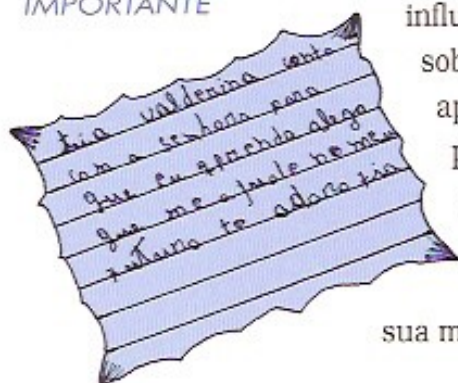 IMPORTANTE
influ
sob
ap
p
sua m
tia valdenina conto
com a senhora para
que eu aprenda alego
que me ajude no meu
futuro te adoro tia